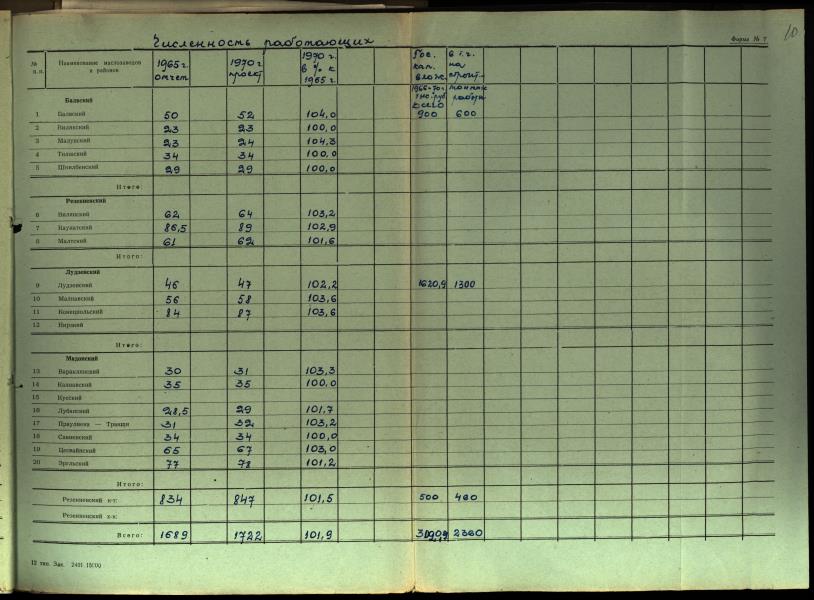 Численность работающих
Форма № 7
10
№ п.п. Наименование маслозаводов и районов 1965 г. отчет 1970 г. проект 1970 г. в % к 1965 г. Гос. кап. влож. 1966-70 г. тыс. руб. всего в т.ч. на строит- работы
Балвский
1 Балвский 50 52 104,0 900 600
2 Вилякский 23 23 100,0
3 Малупский 23 24 104,3
4 Тилжский 34 34 100,0
5 Шкилбенский 29 29 100,0
Итого:
Резекненский
6 Вилянский 62 64 103,2
7 Каунатский 86,5 89 102,9
8 Малтский 61 62 101,6
Итого:
Лудзенский
9 Лудзенский 46 47 102,2 1620,9 1300
10 Малнавский 56 58 103,6
11 Конецпольский 84 87 103,6
12 Нирзский
Итого:
Мадонский
13 Вараклянский 30 31 103,3
14 Калнавский 35 35 100,0
15 Кусский
16 Лубанский 28,5 29 101,7
17 Праулиена — Транши 31 32 103,2
18 Савиенский 34 34 100,0
19 Цесвайнский 65 67 103,0
20 Эргльский 77 78 101,2
Итого:
Резекненский к-т: 834 847 101,5 500 460
Резекненский х-к:
Всего: 1689 1722 101,9 2360
12 тип. Зак. 2401 15000